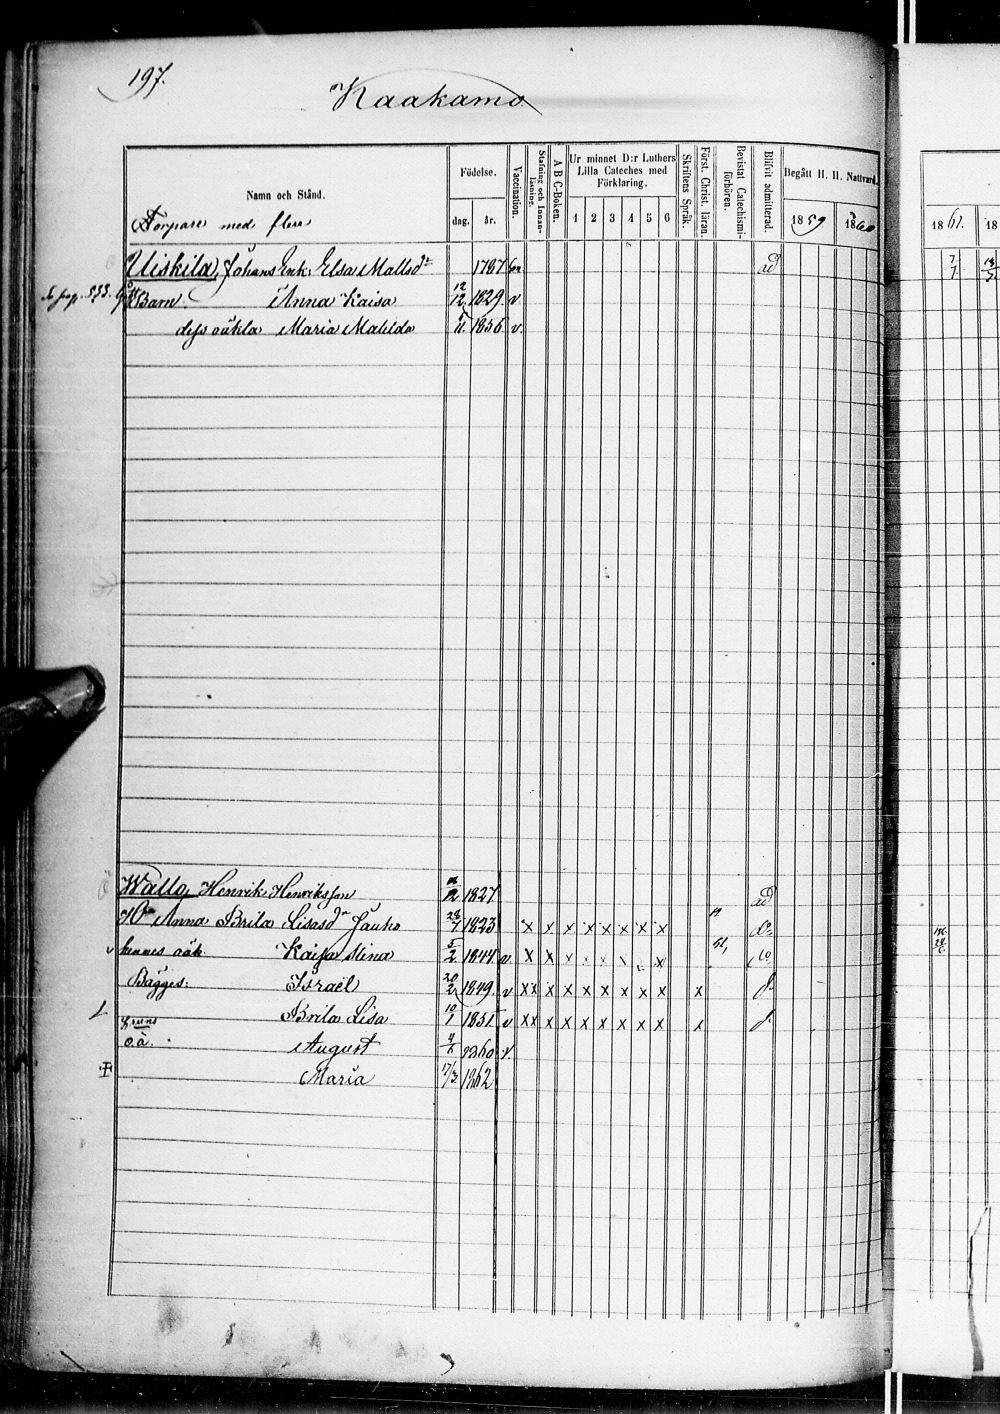 197.
Kaakamo
Namn och Stånd.
Torpare med flere
Födelse.
dag. år.
Vaccination.
Stafning och Innan-läsning.
A B C-Boken.
Ur minnet D:r Luthers
Lilla Cateches med
Förklaring.
1 2 3 4 5 6
Skriftens Språk.
Först. Christ. läran.
Bevistat Catechismi-förhören.
Blifvit admitterad.
Begått H. H. Nattvard.
1859 1860
1861. 18
Uiskila, Johans Enk. Elsa Matlsdr 1787 ad
Barn. Anna Kaisa 12/12 1829. v.
dess oäkta Maria Matilda 1856 v.
Wallo, Henrik Henriksson 1827 ad
Hu Anna Brita Lisasdr Jauho 28/7 1823 x x x x x x x x
hennes oäk. Kaisa Stina 5/2 1844. v. x x x x x x x x
Bägges: Israel 20/2 1849. v x x x x x x x x x x
Brita Lisa 10/1 1851 v x x x x x x x x x x
o.ä. August 1860 v.
Maria 17/3 1862